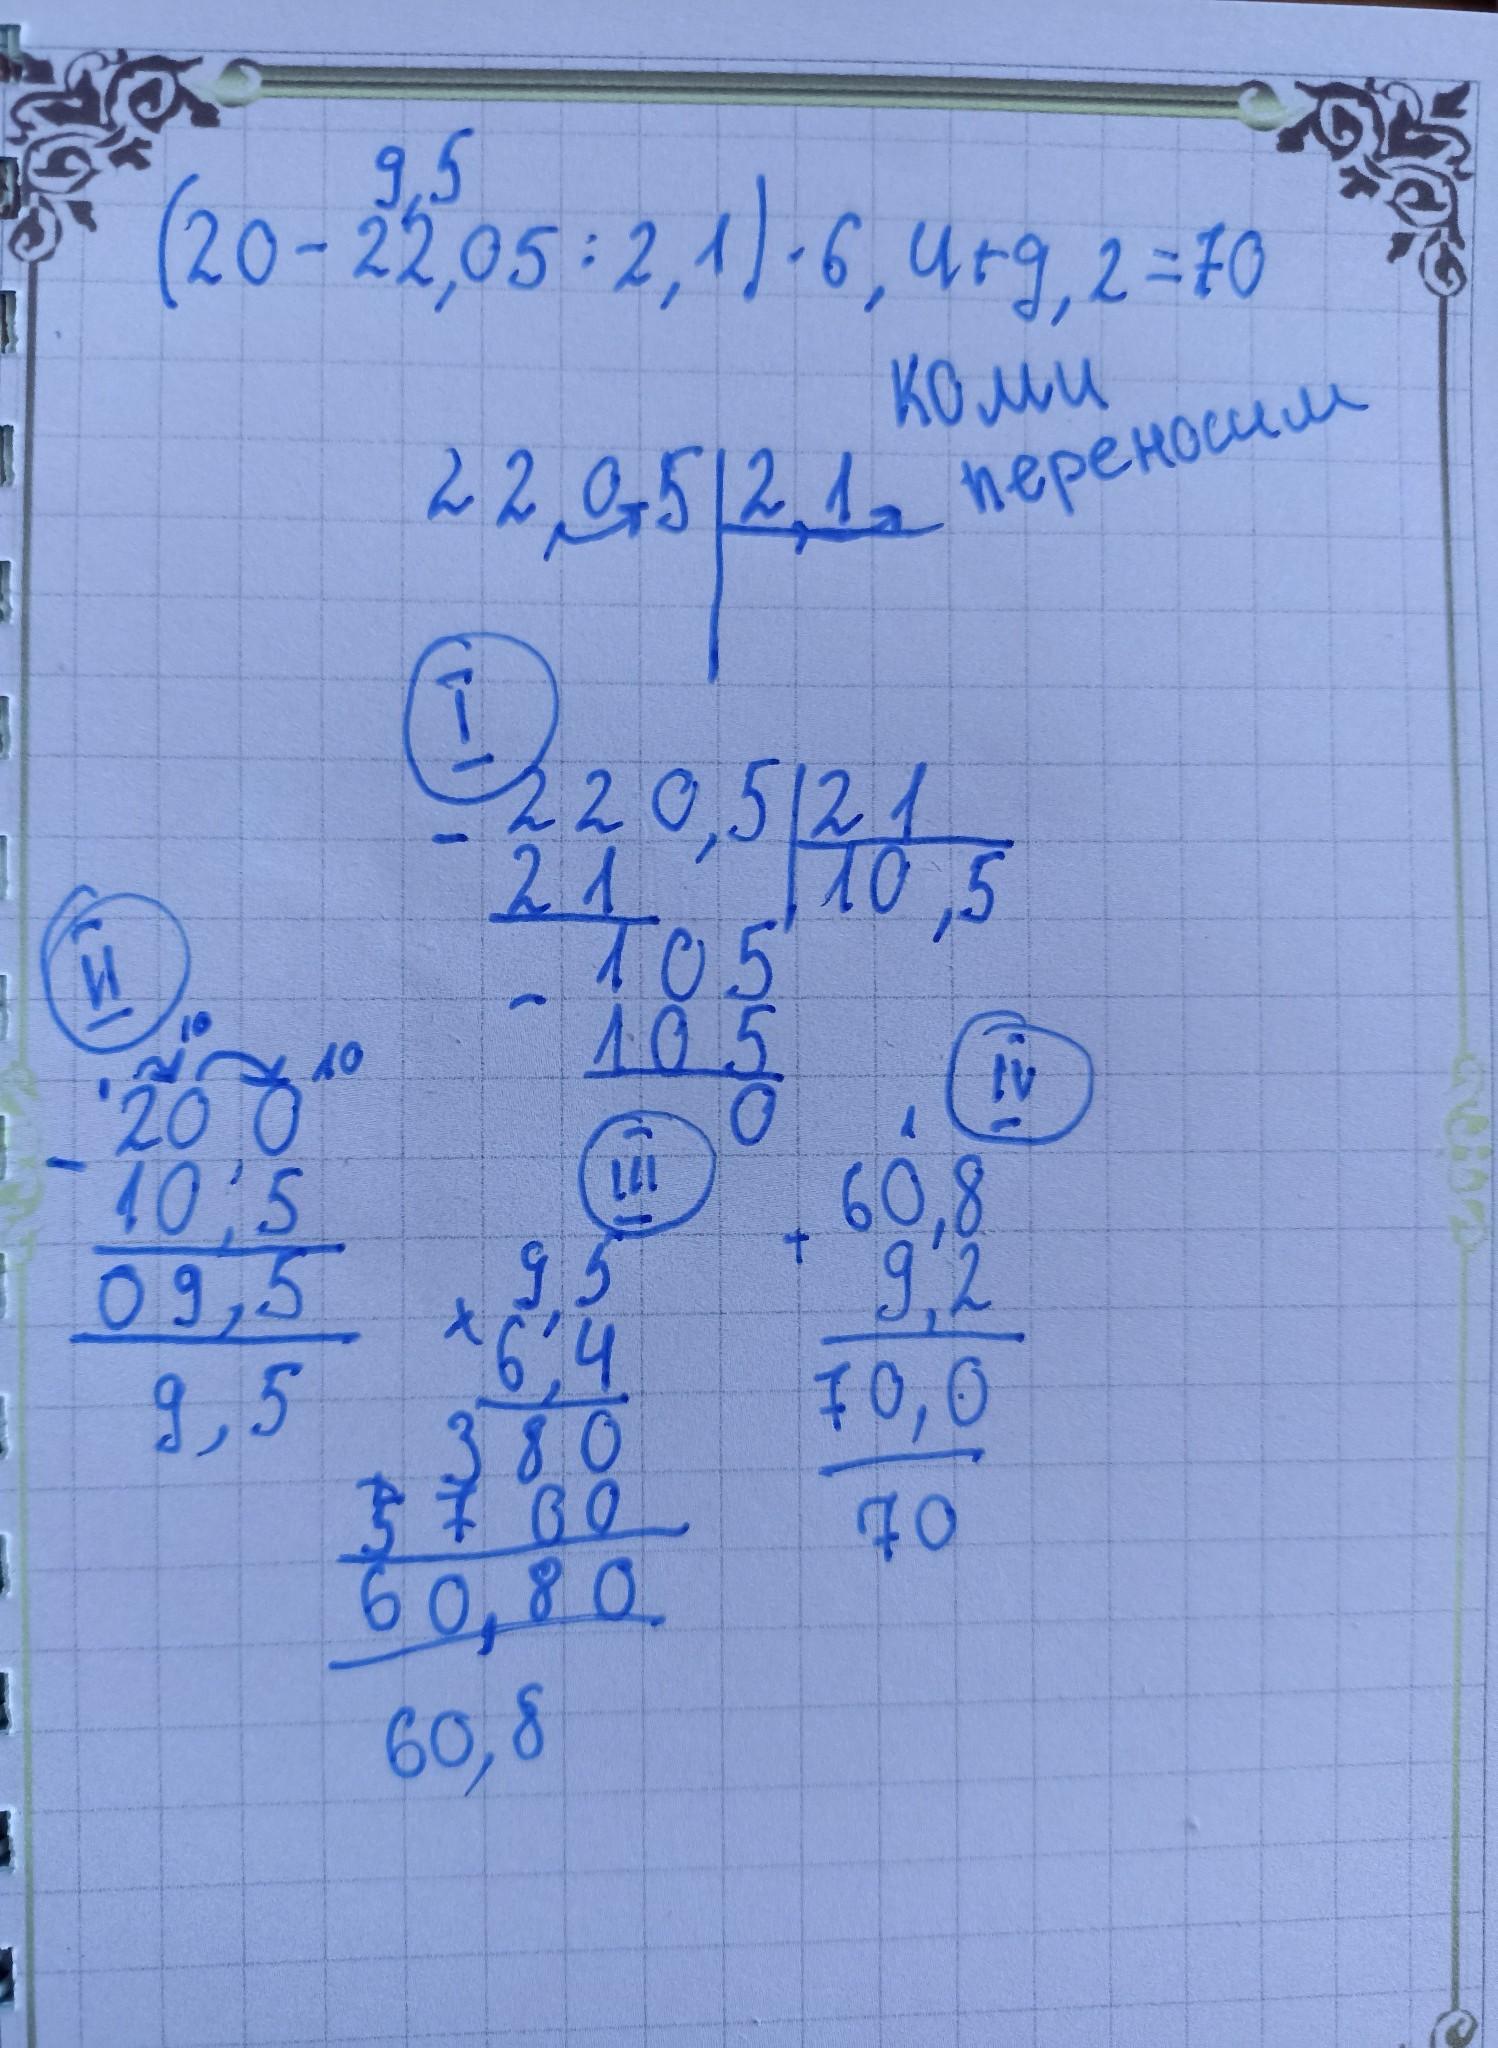 9,5
(20 - 22,05 : 2,1) · 6,4 + 9,2 = 70
коми
переносим
22,05 2,1
I
220,5 21
- 21 10,5
105
- 105
0
II
10 10
200
- 10,5
09,5
9,5
III
9,5
× 6,4
380
5700
60,80
60,8
IV
1
60,8
+ 9,2
70,0
70